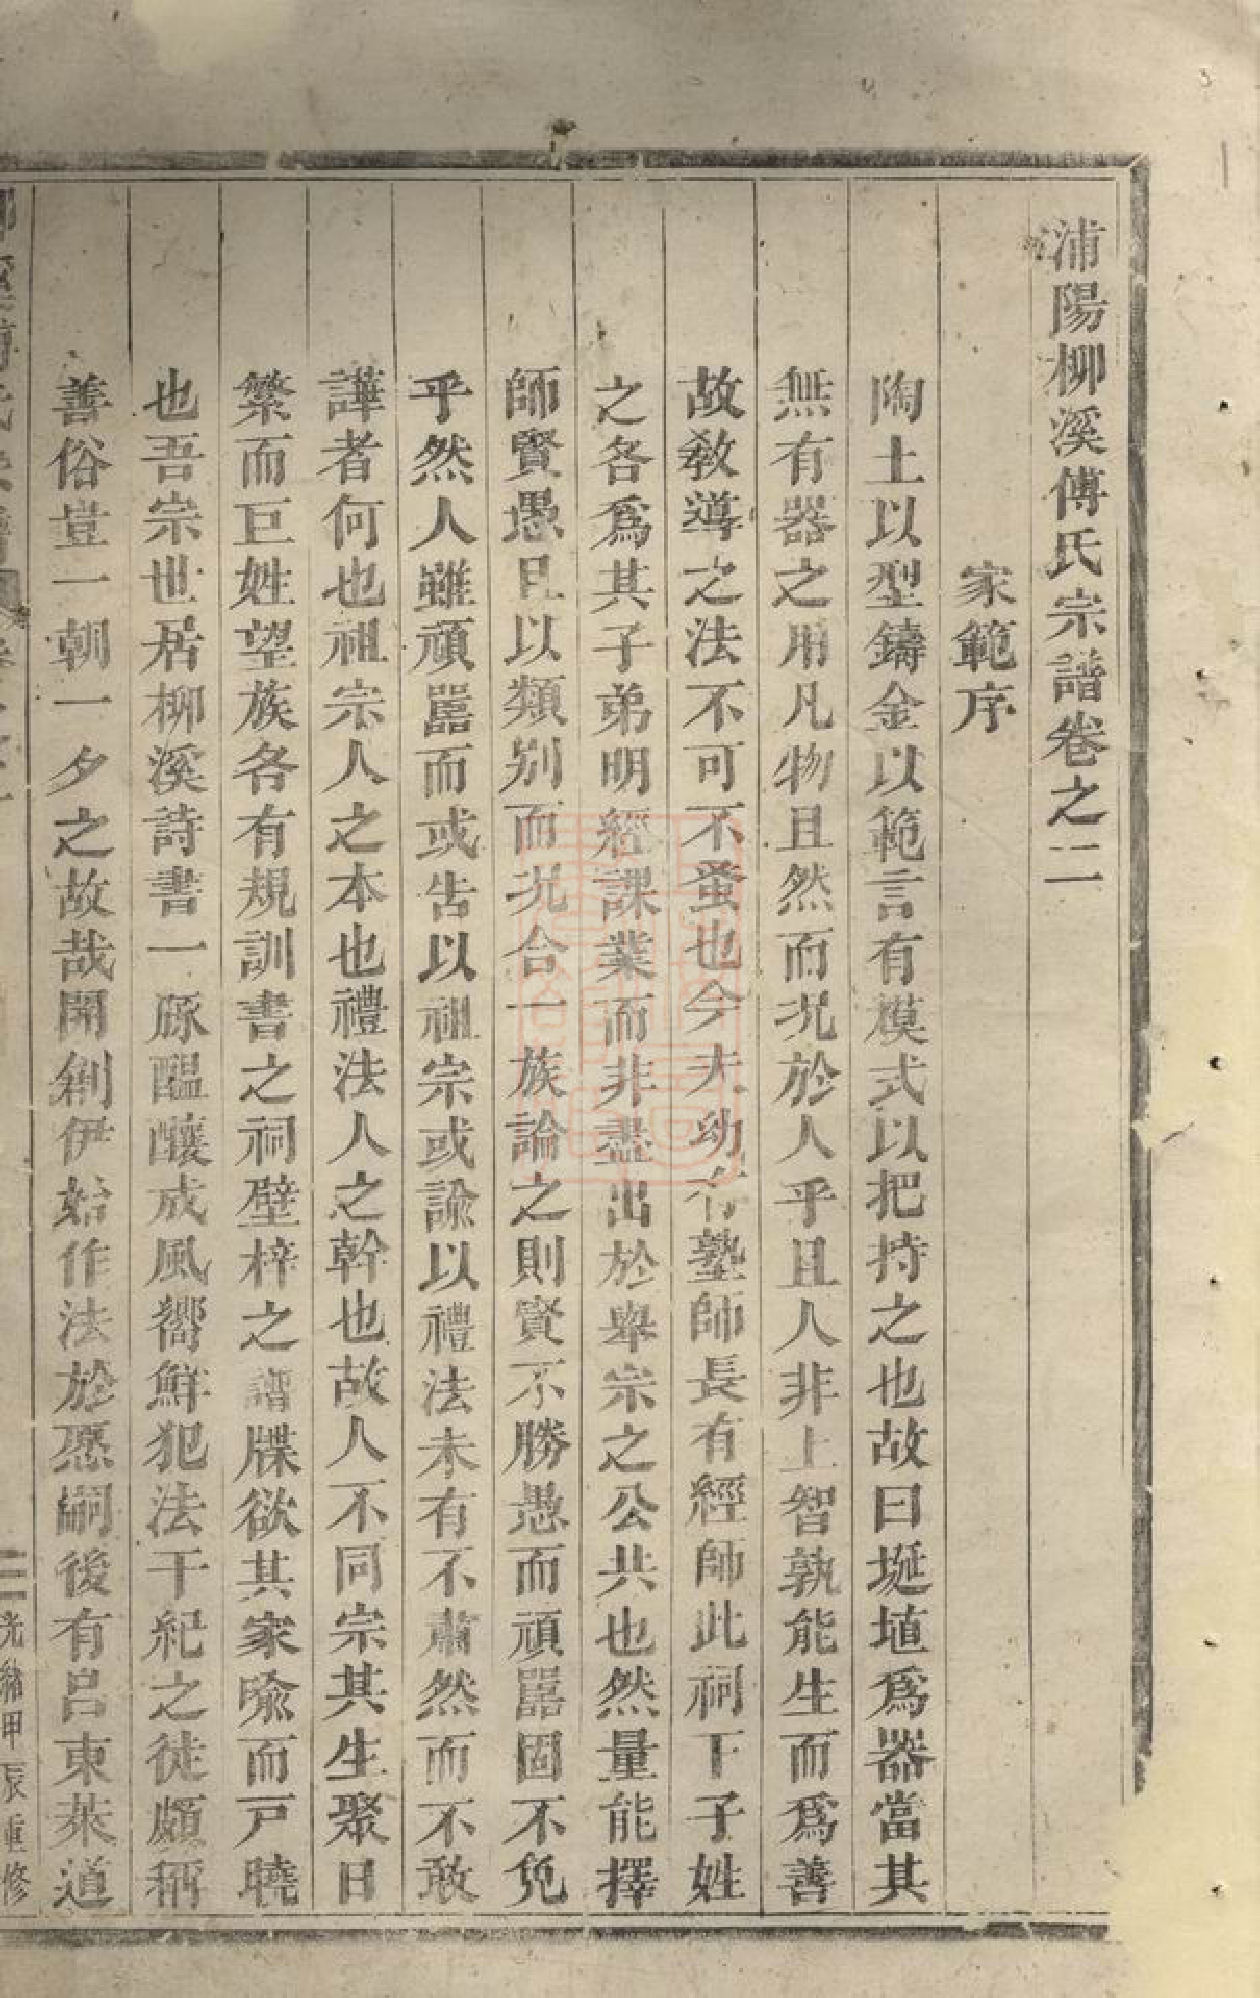 浦陽柳溪傅氏宗譜卷之二
家範序
陶土以型鑄金以範言有模式以把持之也故曰埏埴爲器當其
無有器之用凡物且然而況於人乎且人非上智孰能生而爲善
故教導之法不可不蚤也今夫幼有塾師長有經師此祠下子姓
之各爲其子弟明經課業而非盡出於舉宗之公共也然量能擇
師賢愚且以類別而況合一族論之則賢不勝愚而頑嚚固不免
乎然人雖頑嚚而或告以祖宗或諭以禮法未有不肅然而不敢
譁者何也祖宗人之本也禮法人之幹也故人不同宗其生聚日
繁而巨姓望族各有規訓書之祠壁梓之譜牒欲其家喻而戸曉
也吾宗世居柳溪詩書一脈醞釀成風嚮鮮犯法干紀之徒頗稱
善俗豈一朝一夕之故哉開創伊始作法於愿嗣後有呂東萊道
柳溪傅氏宗譜 卷之二 一 光緒甲辰重修